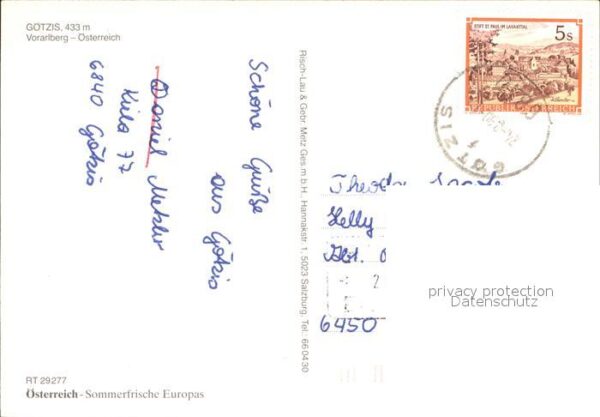 GÖTZIS, 433 m
Vorarlberg – Österreich
Schöne Grüße
aus Götzis
Daniel Metzler
Kula 77
6840 Götzis
Risch-Lau & Gebr. Metz Ges.m.b.H., Hannakstr. 1, 5023 Salzburg, Tel.: 660430
STIFT ST. PAUL IM LAVANTTAL
5s
REPUBLIK ÖSTERREICH
GÖTZIS
Helly
Abt.
2
6450
privacy protection
Datenschutz
RT 29277
Österreich - Sommerfrische Europas